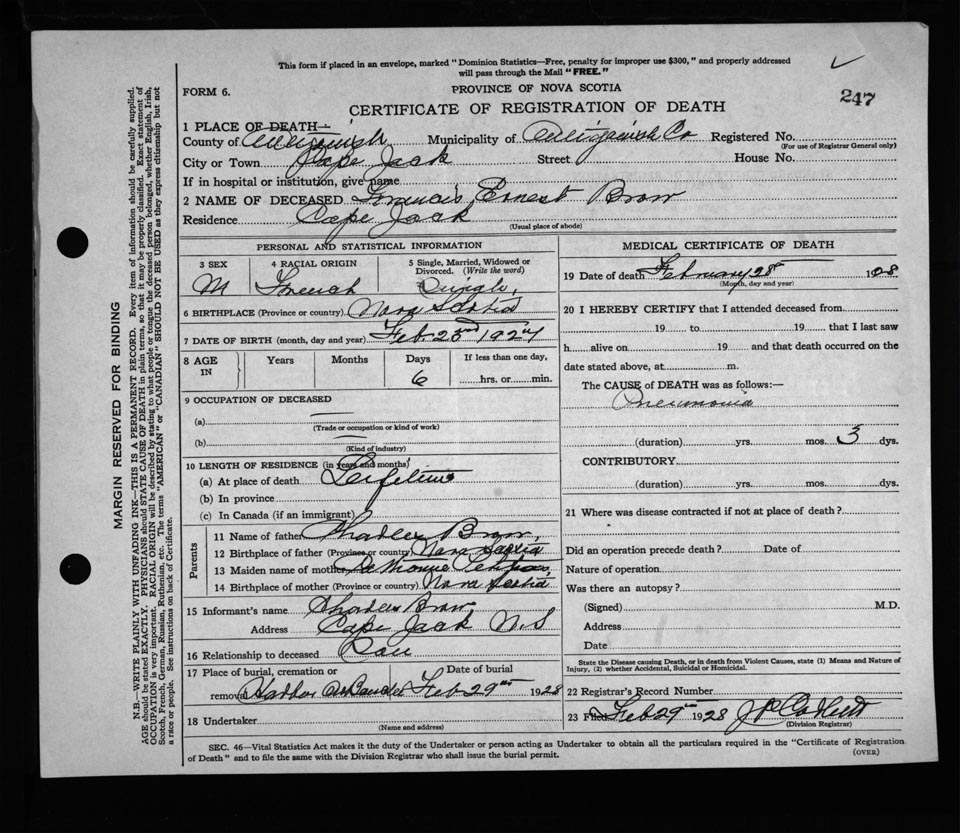 This form if placed in an envelope, marked "Dominion Statistics—Free, penalty for improper use $300," and properly addressed
will pass through the Mail "FREE."
FORM 6.
PROVINCE OF NOVA SCOTIA
247
CERTIFICATE OF REGISTRATION OF DEATH
1 PLACE OF DEATH—
County of Antigonish Municipality of Antigonish Co Registered No.
(For use of Registrar General only)
City or Town Cape Jack Street House No.
If in hospital or institution, give name
2 NAME OF DECEASED Francis Ernest Brow
Residence Cape Jack
(Usual place of abode)
PERSONAL AND STATISTICAL INFORMATION
3 SEX 4 RACIAL ORIGIN 5 Single, Married, Widowed or Divorced. (Write the word)
M French Single
6 BIRTHPLACE (Province or country) Nova Scotia
7 DATE OF BIRTH (month, day and year) Feb. 23rd 192
8 AGE IN Years Months Days If less than one day,
6 hrs. or min.
9 OCCUPATION OF DECEASED
(a)
(Trade or occupation or kind of work)
(b)
(Kind of industry)
10 LENGTH OF RESIDENCE (in years and months)
(a) At place of death Lifetime
(b) In province
(c) In Canada (if an immigrant)
Parents
11 Name of father Charles Brow
12 Birthplace of father (Province or country) Nova Scotia
13 Maiden name of mother
14 Birthplace of mother (Province or country) Nova Scotia
15 Informant's name Charles Brow
Address Cape Jack N.S
16 Relationship to deceased
17 Place of burial, cremation or Date of burial
removal Harbor Feb 29th 1928
18 Undertaker
(Name and address)
MEDICAL CERTIFICATE OF DEATH
19 Date of death February 28th 1928
(Month, day and year)
20 I HEREBY CERTIFY that I attended deceased from
19 to 19 that I last saw
h alive on 19 and that death occurred on the
date stated above, at m.
The CAUSE of DEATH was as follows:—
Pneumonia
(duration) yrs. mos. 3 dys.
CONTRIBUTORY
(duration) yrs. mos. dys.
21 Where was disease contracted if not at place of death?
Did an operation precede death? Date of
Nature of operation
Was there an autopsy?
(Signed) M.D.
Address
Date
State the Disease causing Death, or in death from Violent Causes, state (1) Means and Nature of
Injury, (2) whether Accidental, Suicidal or Homicidal.
22 Registrar's Record Number
23 Filed Feb 29th 1928
(Division Registrar)
SEC. 46—Vital Statistics Act makes it the duty of the Undertaker or person acting as Undertaker to obtain all the particulars required in the "Certificate of Registration
of Death" and to file the same with the Division Registrar who shall issue the burial permit.
(OVER)
MARGIN RESERVED FOR BINDING
N.B.—WRITE PLAINLY WITH UNFADING INK—THIS IS A PERMANENT RECORD. Every item of information should be carefully supplied.
AGE should be stated EXACTLY. PHYSICIANS should STATE CAUSE OF DEATH in plain terms, so that it may be properly classified. Exact statement of
OCCUPATION is very important. RACIAL ORIGIN will be described by stating to what people or tongue the deceased person belonged, whether English, Irish,
Scotch, French, German, Russian, Ruthenian, etc. The terms "AMERICAN" or "CANADIAN" SHOULD NOT BE USED as they express citizenship but not
a race or people. See instructions on back of Certificate.